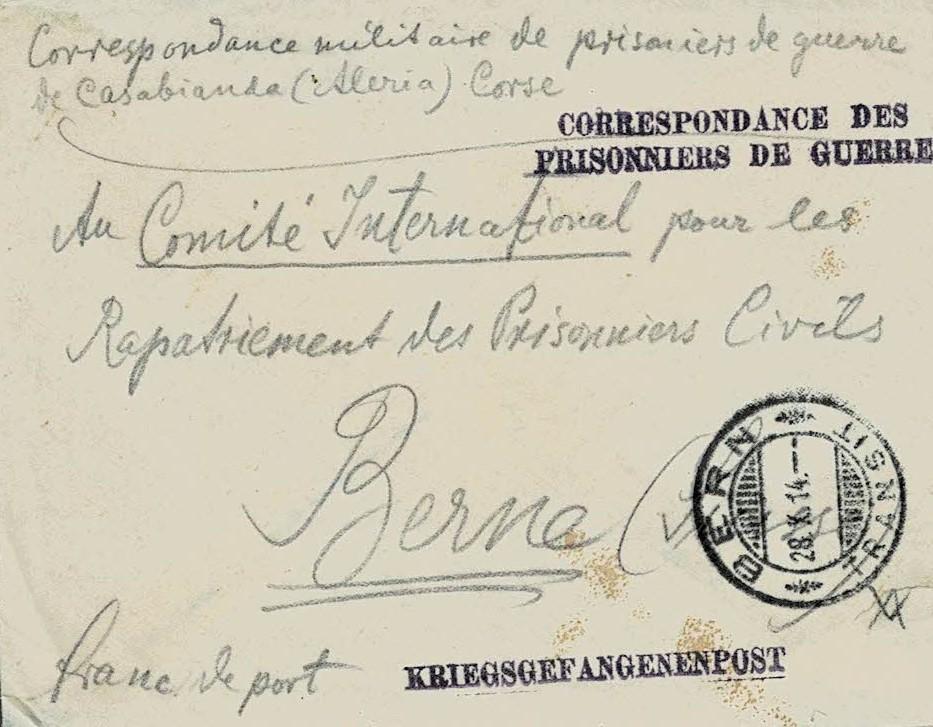 Correspondance militaire de prisoniers de guerre
de Casabianda (Aleria) Corse
CORRESPONDANCE DES
PRISONNIERS DE GUERRE
Au Comité International pour les
Rapatriement des Prisonniers Civils
Berne
BERN TRANSIT
28.X.14.
franc de port
KRIEGSGEFANGENENPOST